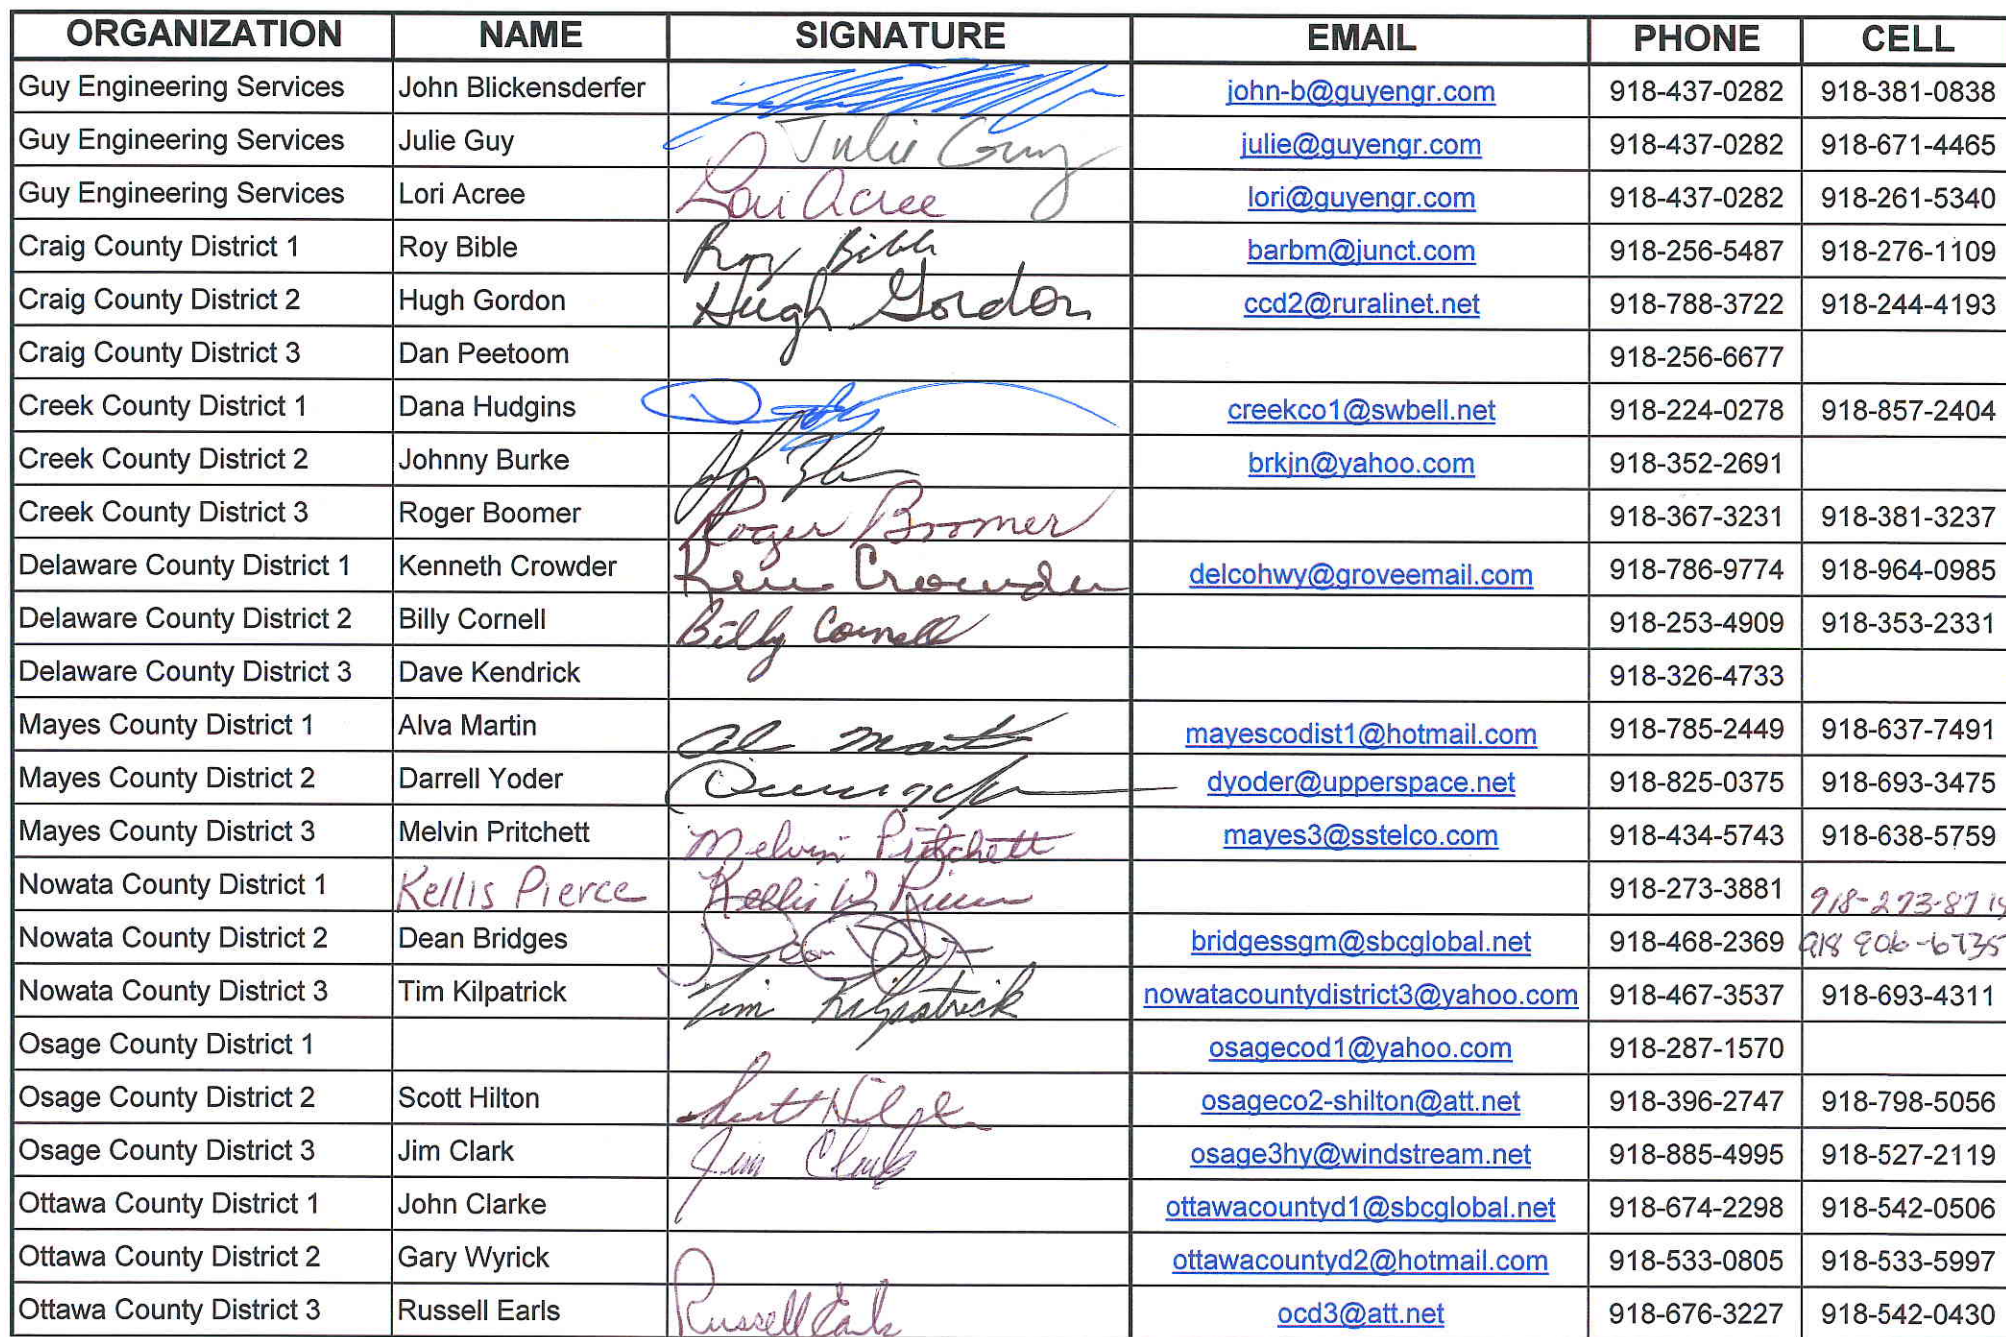 ORGANIZATION NAME SIGNATURE EMAIL PHONE CELL
Guy Engineering Services John Blickensderfer john-b@guyengr.com 918-437-0282 918-381-0838
Guy Engineering Services Julie Guy Julie Guy julie@guyengr.com 918-437-0282 918-671-4465
Guy Engineering Services Lori Acree Lori Acree lori@guyengr.com 918-437-0282 918-261-5340
Craig County District 1 Roy Bible Roy Bible barbm@junct.com 918-256-5487 918-276-1109
Craig County District 2 Hugh Gordon Hugh Gordon ccd2@ruralinet.net 918-788-3722 918-244-4193
Craig County District 3 Dan Peetoom 918-256-6677
Creek County District 1 Dana Hudgins creekco1@swbell.net 918-224-0278 918-857-2404
Creek County District 2 Johnny Burke brkjn@yahoo.com 918-352-2691
Creek County District 3 Roger Boomer Roger Boomer 918-367-3231 918-381-3237
Delaware County District 1 Kenneth Crowder Ken Crowder delcohwy@groveemail.com 918-786-9774 918-964-0985
Delaware County District 2 Billy Cornell Billy Cornell 918-253-4909 918-353-2331
Delaware County District 3 Dave Kendrick 918-326-4733
Mayes County District 1 Alva Martin Al Martin mayescodist1@hotmail.com 918-785-2449 918-637-7491
Mayes County District 2 Darrell Yoder dyoder@upperspace.net 918-825-0375 918-693-3475
Mayes County District 3 Melvin Pritchett Melvin Pritchett mayes3@sstelco.com 918-434-5743 918-638-5759
Nowata County District 1 Kellis Pierce Kellis W Pierce 918-273-3881 918-273-87
Nowata County District 2 Dean Bridges Dean bridgessgm@sbcglobal.net 918-468-2369 918 906-6735
Nowata County District 3 Tim Kilpatrick Tim Kilpatrick nowatacountydistrict3@yahoo.com 918-467-3537 918-693-4311
Osage County District 1 osagecod1@yahoo.com 918-287-1570
Osage County District 2 Scott Hilton Scott Hilton osageco2-shilton@att.net 918-396-2747 918-798-5056
Osage County District 3 Jim Clark Jim Clark osage3hy@windstream.net 918-885-4995 918-527-2119
Ottawa County District 1 John Clarke ottawacountyd1@sbcglobal.net 918-674-2298 918-542-0506
Ottawa County District 2 Gary Wyrick ottawacountyd2@hotmail.com 918-533-0805 918-533-5997
Ottawa County District 3 Russell Earls Russell Earls ocd3@att.net 918-676-3227 918-542-0430